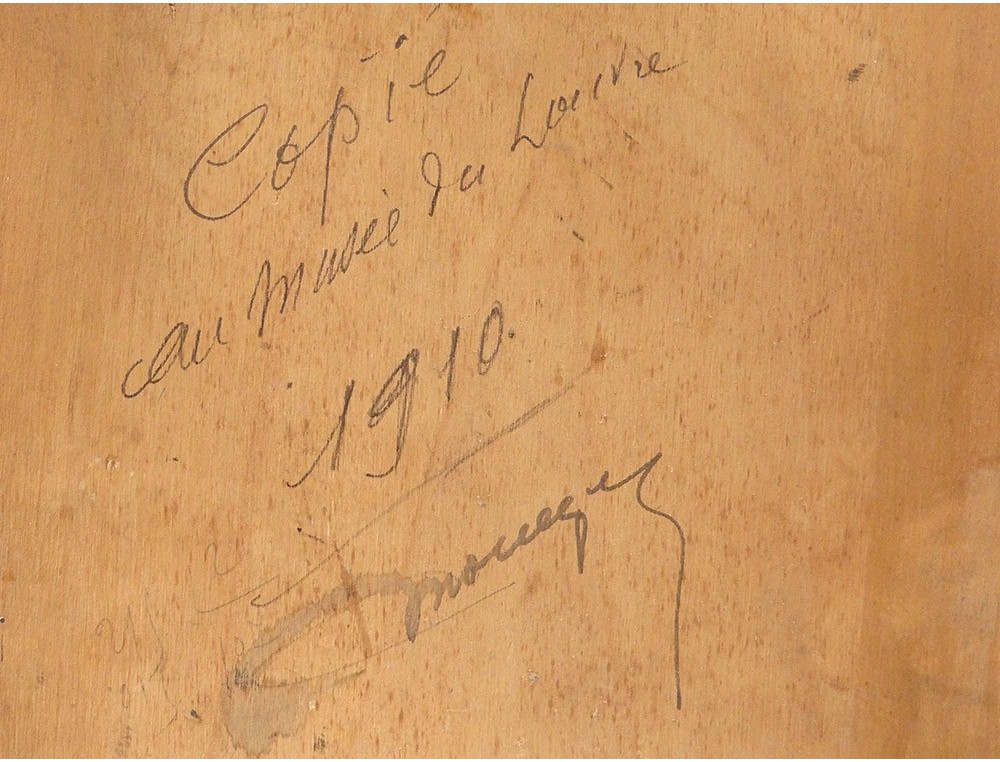 Copie
au Musée du Louvre
1910.